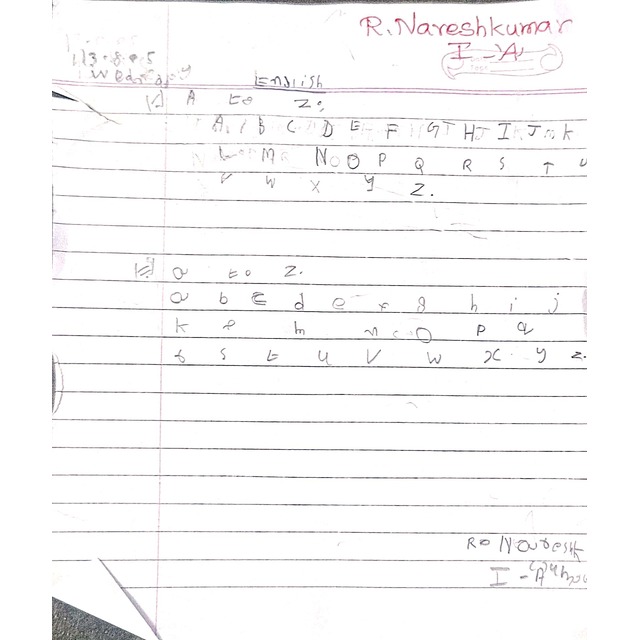 R. Nareshkumar
I - A
English
A to Z.
A B C D E F G H I J K
L M N O P Q R S T U
V W X Y Z.
a to z.
a b c d e f g h i j
k l m n o p q
r s t u v w x y z.
R. Naresh
I - A